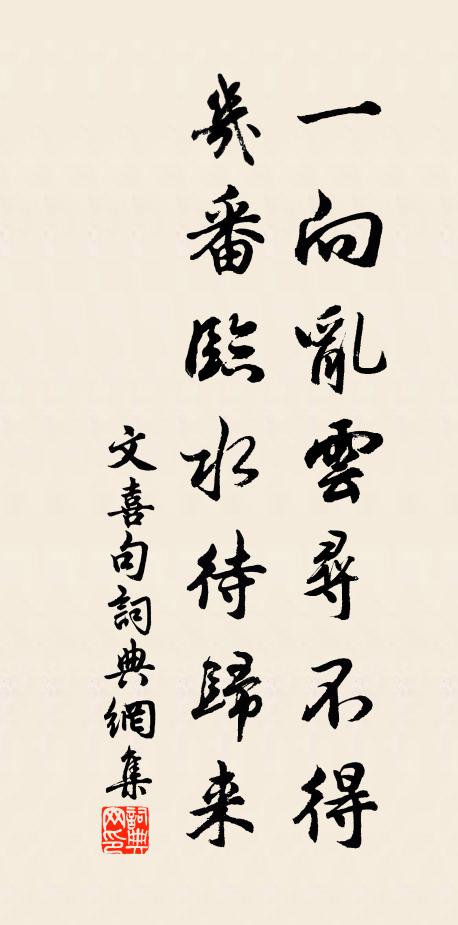 一向亂雲尋不得
幾番臨水待歸来
文喜句詞典網集
詞典网印